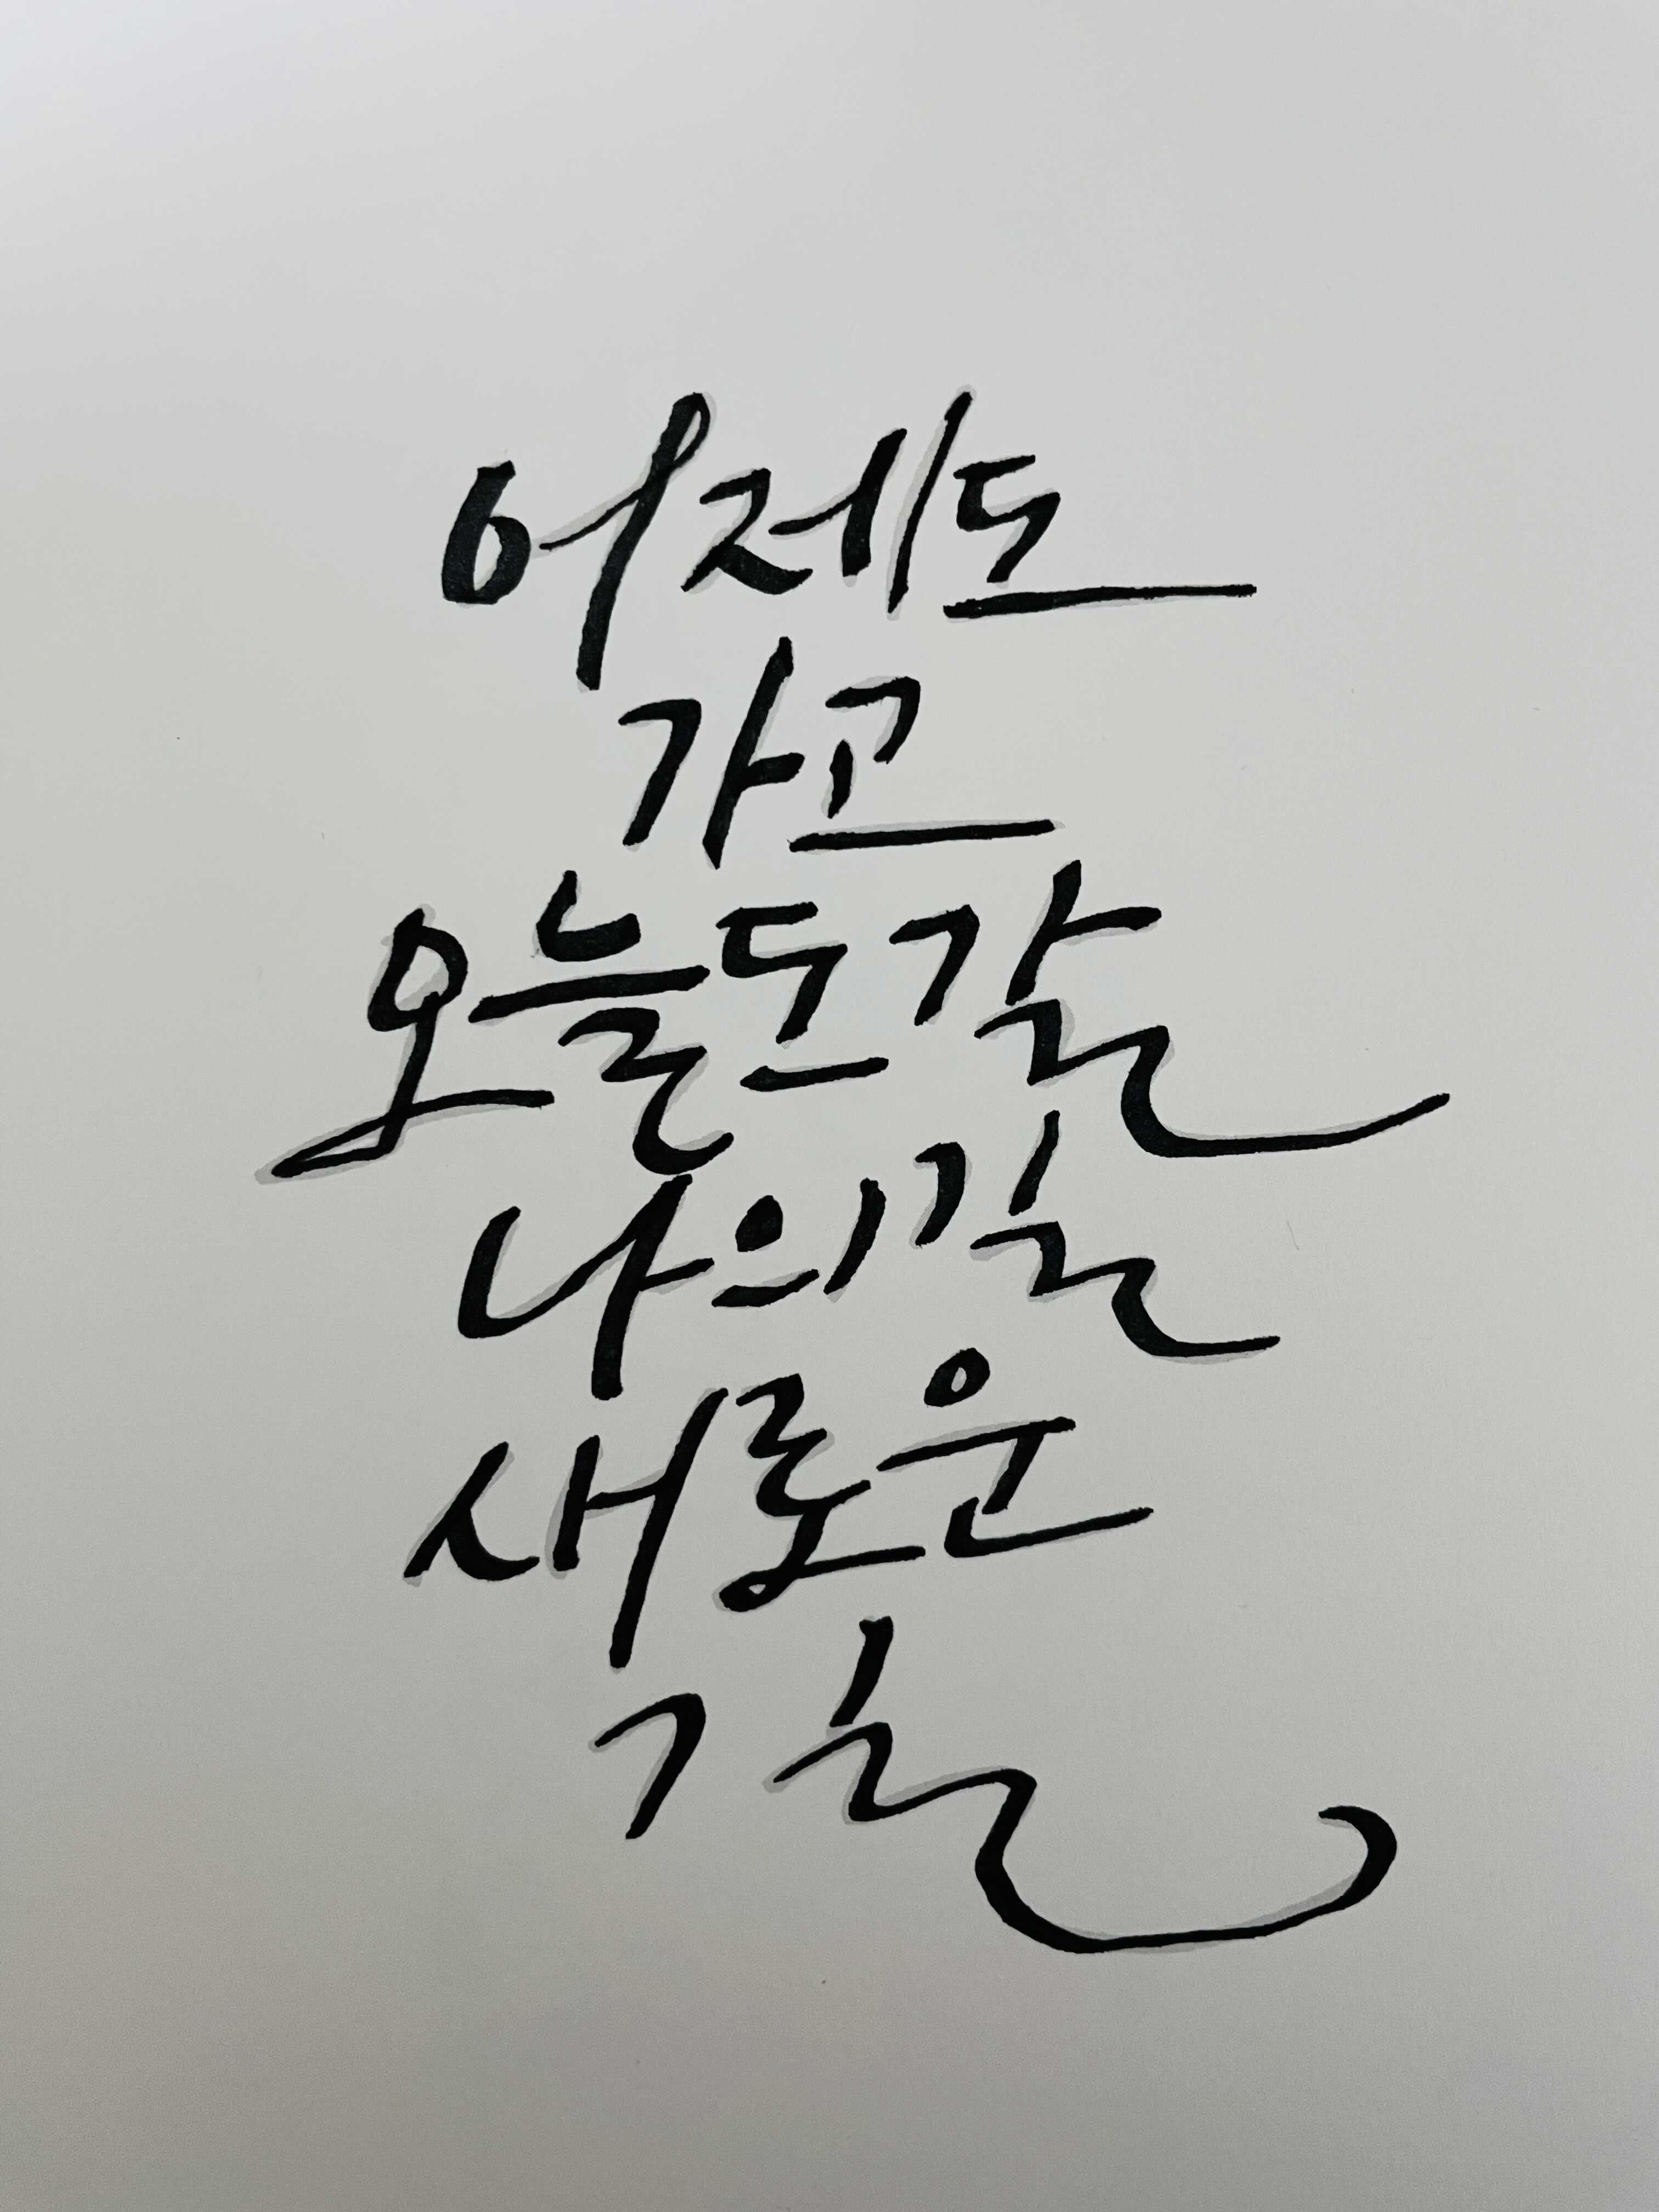 어제도
가고
오늘도 갈
나의 길
새로운
길